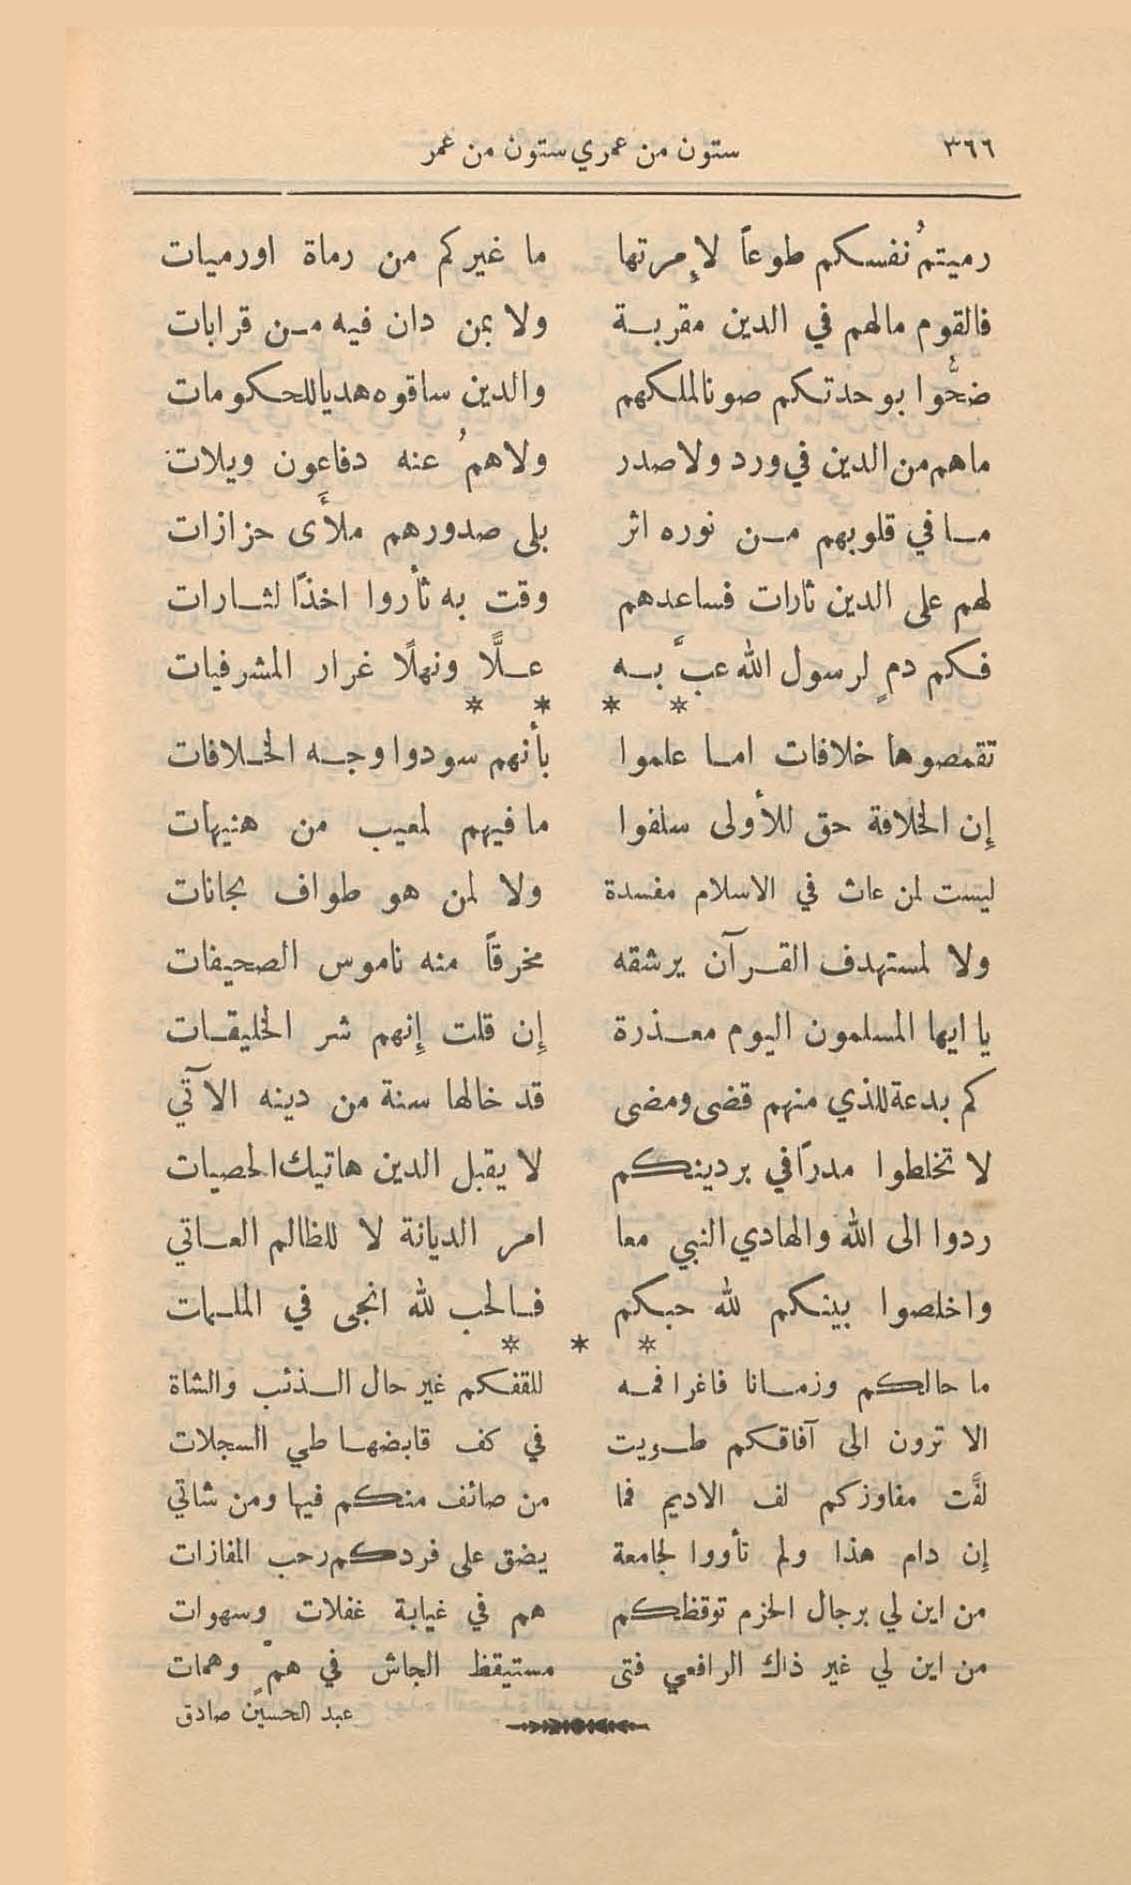 ٣٦٦ ستون من عمري ستون من عمر
رميتمُ نفسكم طوعاً لإمرتها ما غيركم من رماة اورميات
فالقوم مالهم في الدين مقربة ولا بمن دان فيه من قرابات
ضحُّوا بوحدتكم صونا لملكهم والدين ساقوه هديا للحكومات
ماهم من الدين في ورد ولا صدر ولاهمُ عنه دفاعون ويلات
ما في قلوبهم من نوره اثر بلى صدورهم ملأى حزازات
لهم على الدين ثارات فساعدهم وقت به ثأروا اخذًا لثارات
فكم دمٍ لرسول الله عبَّ به علًّا ونهلًا غرار المشرفيات
* * * *
تقمصوها خلافات اما علموا بأنهم سودوا وجه الخلافات
إن الخلافة حق للأولى سلفوا ما فيهم لمعيب من هنيهات
ليست لمن عاث في الاسلام مفسدة ولا لمن هو طواف بحانات
ولا لمستهدف القرآن يرشقه مخرقاً منه ناموس الصحيفات
يا ايها المسلمون اليوم معذرة إن قلت إنهم شر الخليقات
كم بدعة للذي منهم قضى ومضى قد خالها سنة من دينه الآتي
لا تخلطوا مدرًا في بر دينكم لا يقبل الدين هاتيك الحصيات
ردوا الى الله والهادي النبي معا امر الديانة لا للظالم العاتي
واخلصوا بينكم لله حبكم فالحب لله انجى في الملمات
* * *
ما حالكم وزمانا فاغرا فمه للقفكم غير حال الذئب والشاة
الا ترون الى آفاقكم طويت في كف قابضها طي السجلات
لفَّت مفاوزكم لف الاديم فما من صائف منكم فيها ومن شاتي
إن دام هذا ولم تأووا لجامعة يضق على فردكم رحب المفازات
من اين لي برجال الحزم توقظكم هم في غيابة غفلات وسهوات
من اين لي غير ذاك الرافعي فتى مستيقظ الجاش في همّ وهمات
عبد الحسين صادق